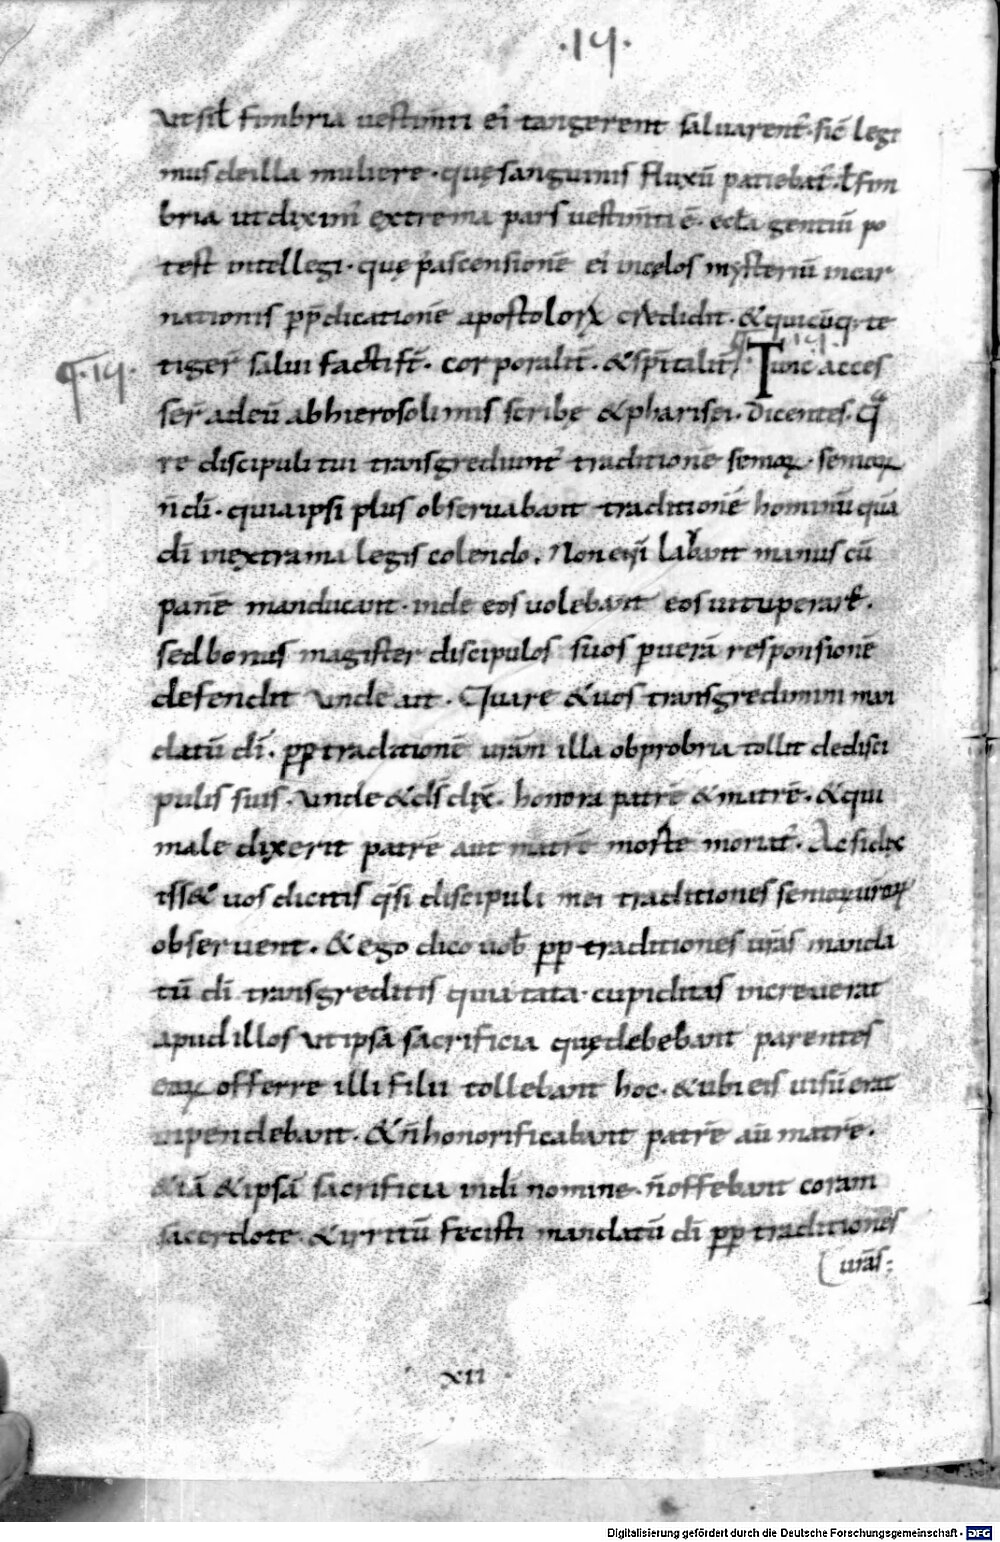 ·19·
Ut sił fimbria uestimti ei᾽ tangerent saluarent᾽. sic̄ legi
mus de illa muliere · quę sanguinis fluxū patiebat᾽. ł fim
bria ut dixim᾽ extrema pars uestimti ē· eccła gentiū po
test intellegi · quę p᾽ ascensionē ei᾽ incęlos mysteriū incar
nationis p̄ p̄dicationē apostoloꝝ credidit · & quicūq; te
tiger̄ salui facti st̄ · corporalit̄ · & spitalit̄ Tunc acces
·19·
¶·19·
ser̄ ad eū ab hierosolimis scribę & pharisei · dicentes · Q
re discipuli tui transgrediunt᾽ traditionē semoꝝ · senioꝝ
n̄ di · quia ipsi plus obseruabant traditionē hominū quā
dī in extrema legis colendo. Non eni labant manus cū
panē manducant · inde eos uolebant eos uituperare.
sed bonus magister discipulos suos p uerā responsionē
defendit Unde ait · Quare & uos transgredimini man
datū dī · pp traditionē uram illa obprobria tollit de disci
pulis suis · Unde & ds dix̄ · honora patrē & matrē · & qui
male dixerit patrē aut matrē morte moriat᾽ · Ac si dix
iss& uos dicitis qsi discipuli mei traditiones senioꝝ uroꝝ
obseruent · & ego dico uob pp traditiones uras manda
tū dī transgreditis quia tata cupiditas increuerat
apud illos ut ipsa sacrificia quę debebant parentes
eoꝝ offerre illi filii tollebant hoc · & ubi eis uisū erat
inpendebant · & n̄ honorificabant patrē aū matrē ·
&iā & ipsā sacrificia in dī nomine · n̄ offebant coram
sacerdote · & irritū fecisti mandatū dī pp traditiones
uras:
xii
Digitalisierung gefördert durch die Deutsche Forschungsgemeinschaft - DFG